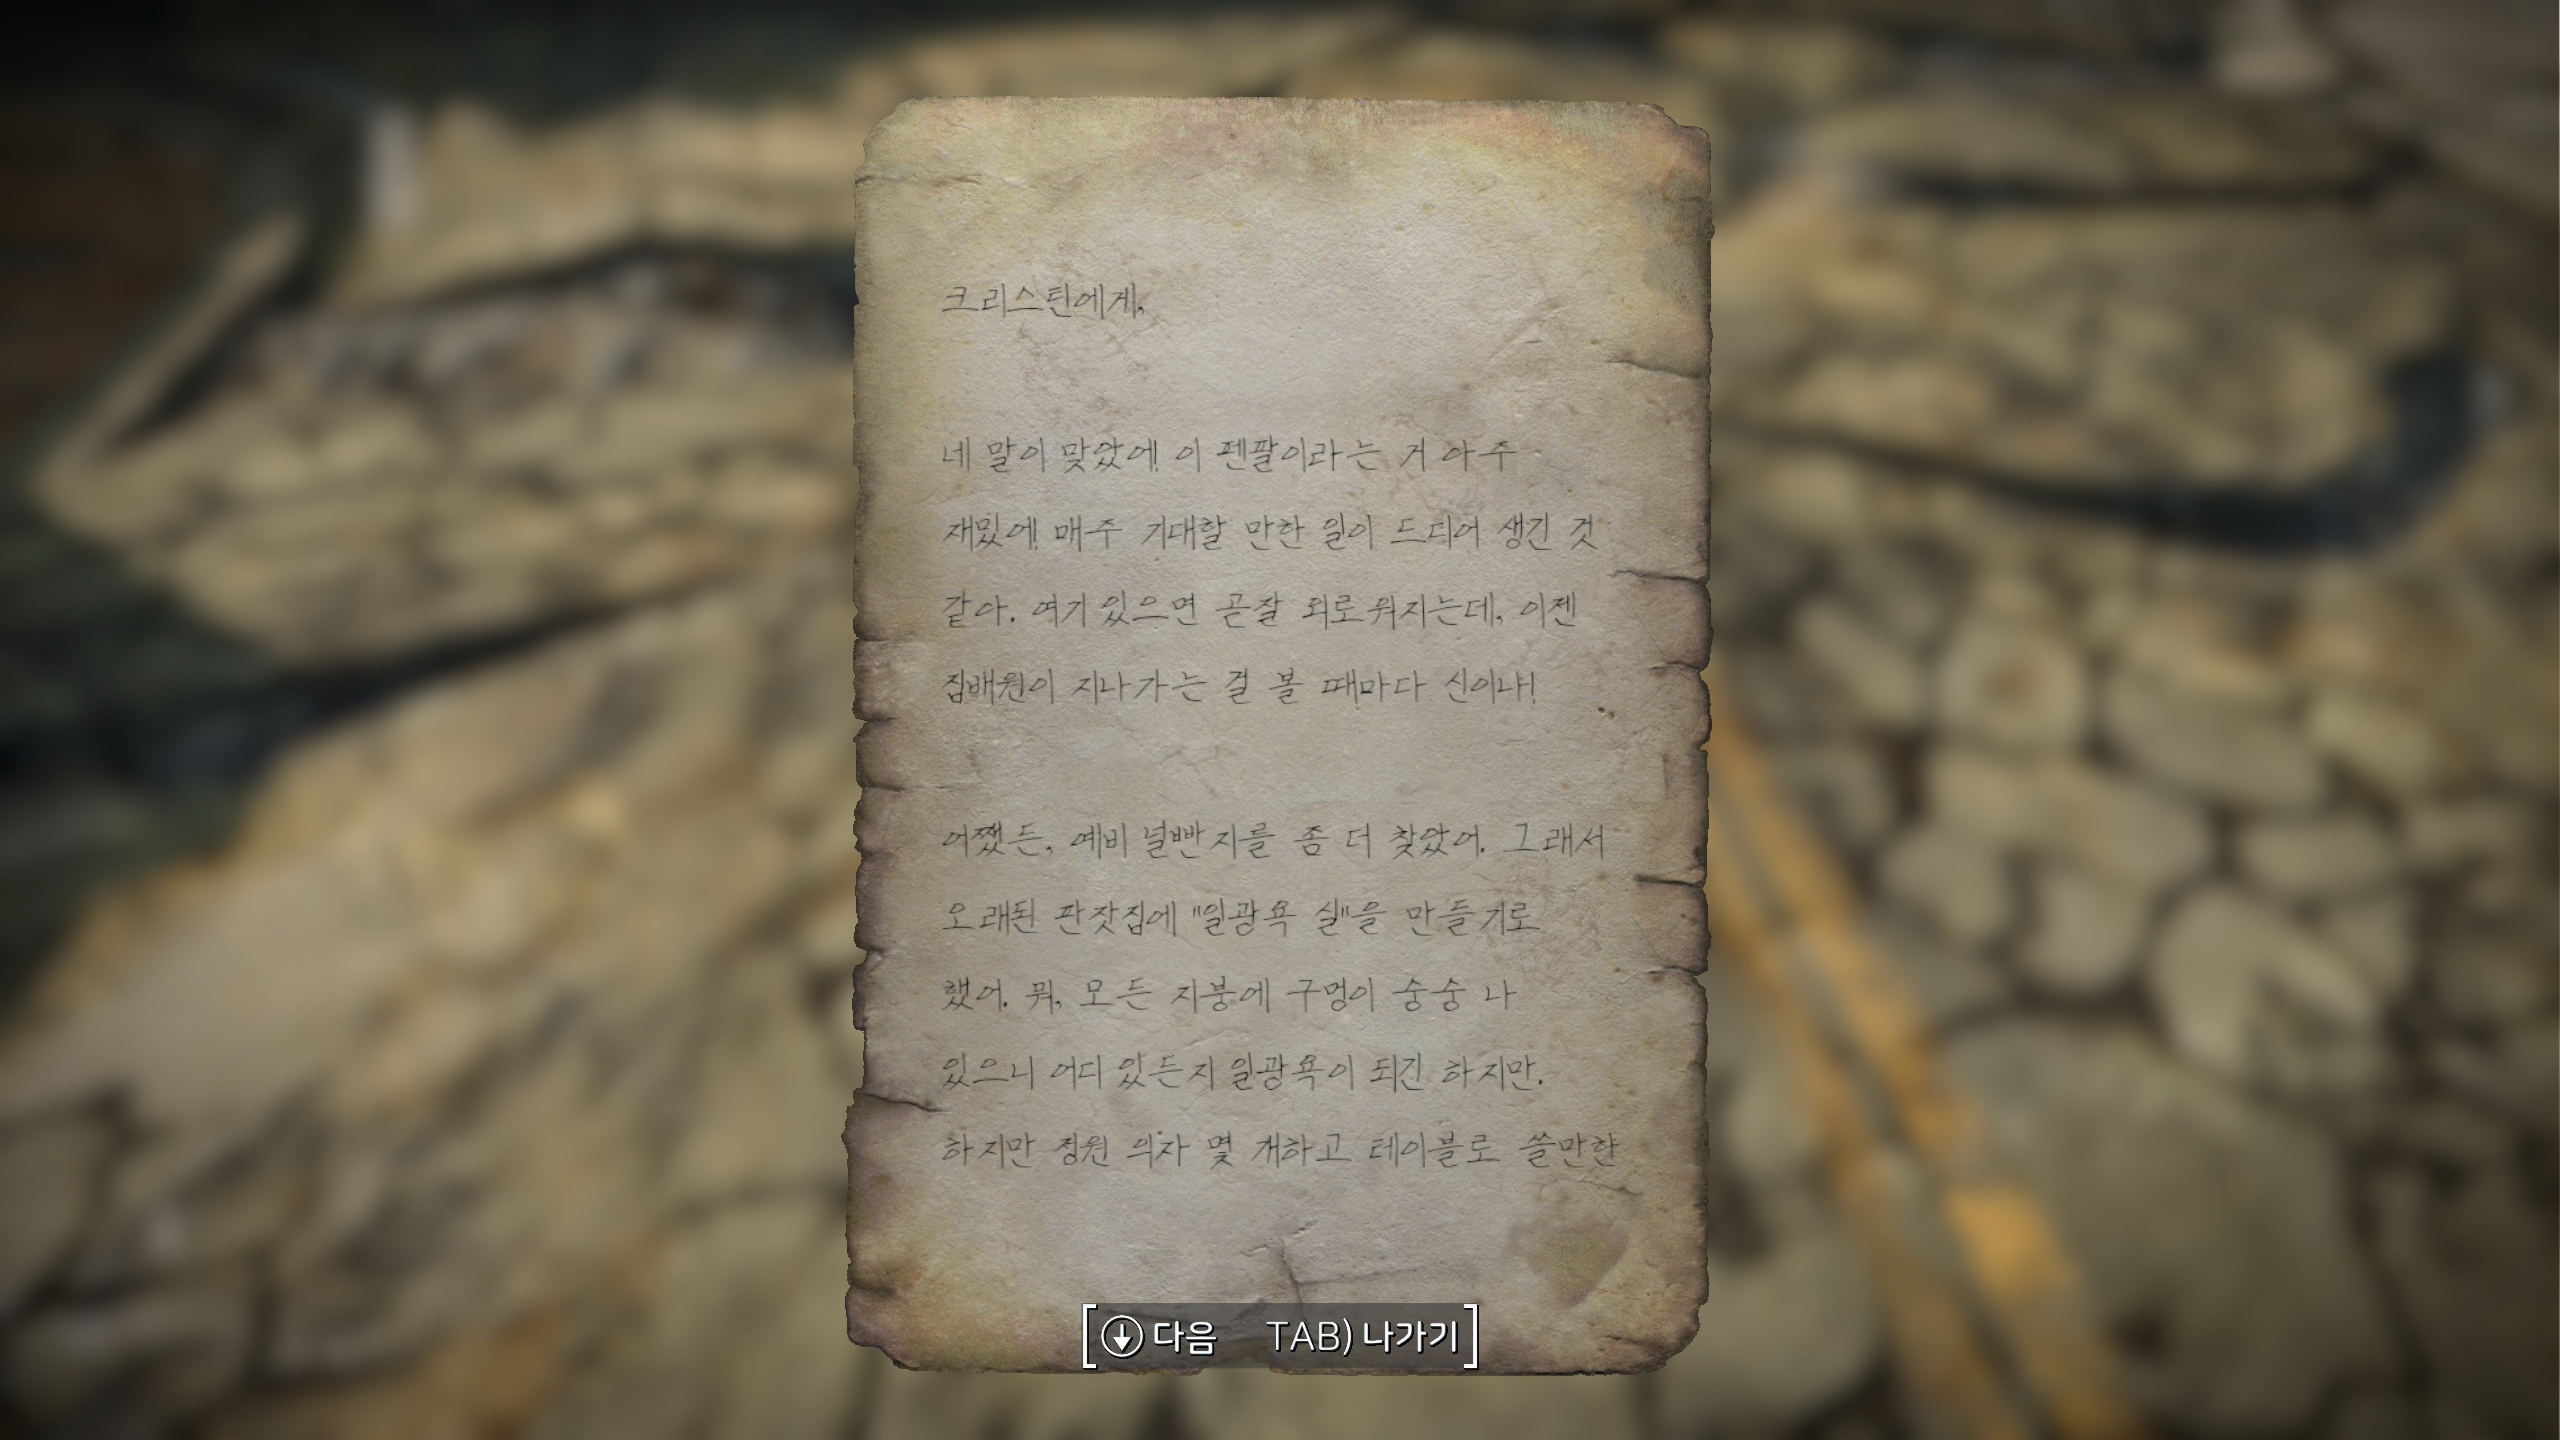 크리스틴에게,
네 말이 맞았어! 이 펜팔이라는 거 아주
재밌어! 매주 기대할 만한 일이 드디어 생긴 것
같아. 여기 있으면 곧잘 외로워지는데, 이젠
집배원이 지나가는 걸 볼 때마다 신이나!
어쨌든, 예비 널빤지를 좀 더 찾았어. 그래서
오래된 판잣집에 "일광욕 실"을 만들기로
했어. 뭐, 모든 지붕에 구멍이 숭숭 나
있으니 어디 있든지 일광욕이 되긴 하지만.
하지만 정원 의자 몇 개하고 테이블로 쓸만한
다음 TAB) 나가기